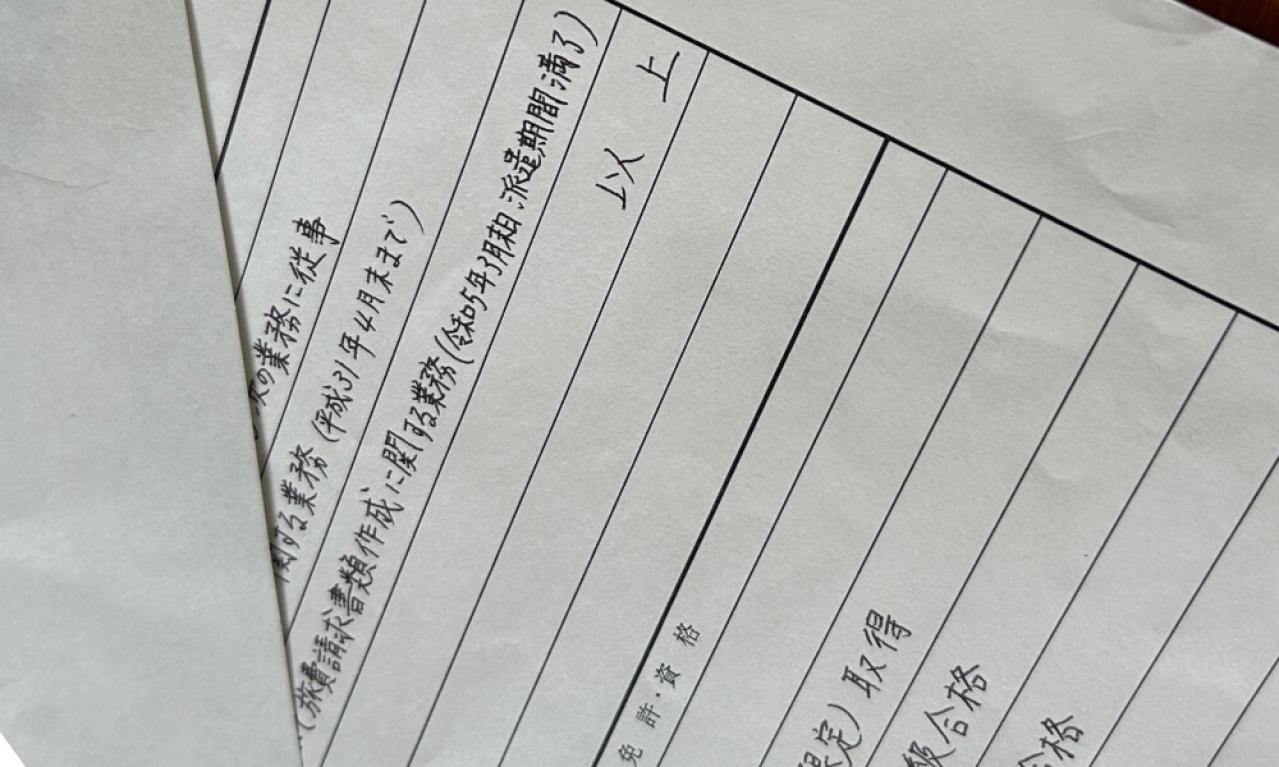 次の業務に従事
関する業務(平成31年4月末まで)
(旅費請求書類作成に関する業務(令和5年3月末日、派遣期間満了)
以上
免許・資格
限定)取得
級合格
合格